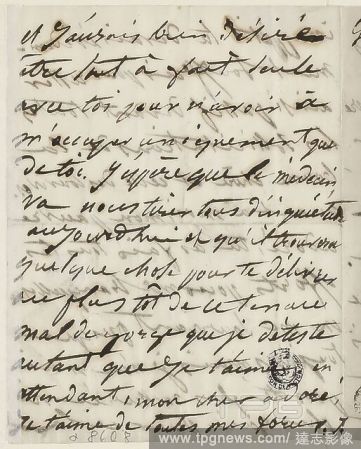 et j'aurais bien désiré
être tout à fait seule
avec toi pour n'avoir à
m'occuper uniquement que
de toi. J'espère que le médecin
va nous tirer tous d'inquiétude
aujourd'hui et qu'il trouvera
quelque chose pour te délivrer
au plus tôt de ce tenace
mal de gorge que je déteste
autant que je t'aime en
attendant, mon cher adoré,
je t'aime de toutes mes forces.
28608
www.tpgnews.com/達志影像